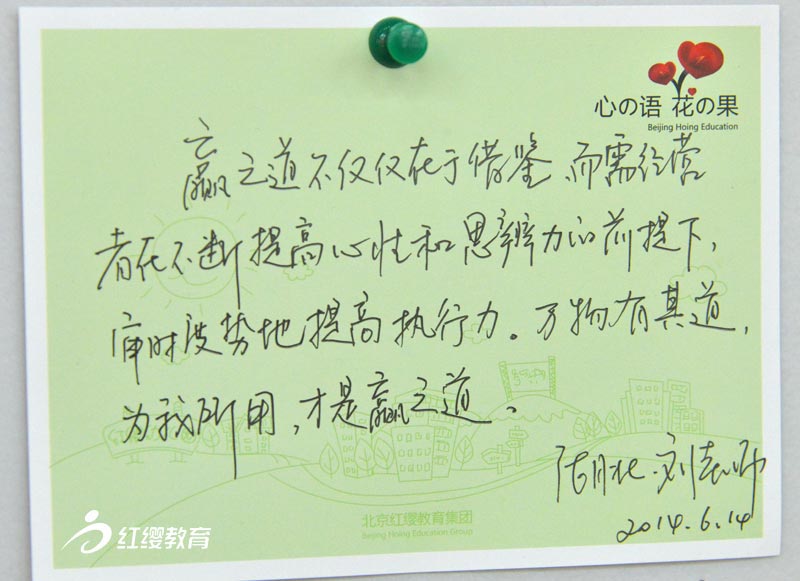 心の语 花の果
Beijing Hoing Education
赢之道不仅仅在于借鉴,而需经营
者在不断提高心性和思辨力的前提下,
审时度势地提高执行力。万物有其道,
为我所用,才是赢之道。
湖北·刘老师
2014.6.14
北京红缨教育集团
Beijing Hoing Education Group
红缨教育